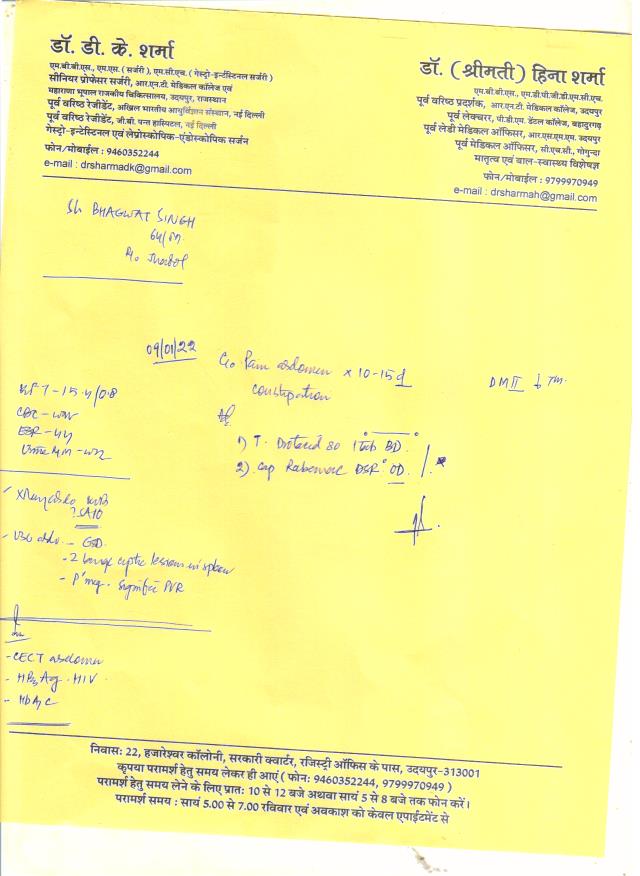 डॉ. डी. के. शर्मा
एम.बी.बी.एस., एम.एस. (सर्जरी), एम.सी.एच. (गेस्ट्रो-इन्टेंस्टिनल सर्जरी)
सीनियर प्रोफेसर सर्जरी, आर.एन.टी. मेडिकल कॉलेज एवं
महाराणा भूपाल राजकीय चिकित्सालय, उदयपुर, राजस्थान
पूर्व वरिष्ठ रेजीडेंट, अखिल भारतीय आयुर्विज्ञान संस्थान, नई दिल्ली
पूर्व वरिष्ठ रेजीडेंट, जी.बी. पन्त हास्पिटल, नई दिल्ली
गेस्ट्रो-इन्टेस्टिनल एवं लेप्रोस्कोपिक-एंडोस्कोपिक सर्जन
फोन/मोबाईल : 9460352244
e-mail : drsharmadk@gmail.com
डॉ. (श्रीमती) हिना शर्मा
एम.बी.बी.एस., एम.डी.पी.जी.डी.एम.सी.एच.
पूर्व वरिष्ठ प्रदर्शक, आर.एन.टी. मेडिकल कॉलेज, उदयपुर
पूर्व लेक्चरर, पी.डी.एम. डेंटल कॉलेज, बहादुरगढ़
पूर्व लेडी मेडिकल ऑफिसर, आर.एस.एम.एम. उदयपुर
पूर्व मेडिकल ऑफिसर, सी.एच.सी., गोगुन्दा
मातृत्व एवं बाल-स्वास्थ्य विशेषज्ञ
फोन/मोबाईल : 9799970949
e-mail : drsharmah@gmail.com
Sh BHAGWAT SINGH
64/M
R/o Jhadol
09/01/22
C/o Pain abdomen x 10-15d
constipation
DM II
CBC - WNL
ESR - 44
Urine RM - WNL
1) T. Drotacad 80 1 tab BD
2) Cap Rabemac DSR OD
Xray abdo KUB
? SAIO
USG abdo - GSD
- 2 large cystic lesions in spleen
- P'meg. Significt PVR
Adv
- CECT abdomen
- HBsAg. HIV
- HbA1C
निवास: 22, हजारेश्वर कॉलोनी, सरकारी क्वार्टर, रजिस्ट्री ऑफिस के पास, उदयपुर-313001
कृपया परामर्श हेतु समय लेकर ही आएं ( फोन: 9460352244, 9799970949 )
परामर्श हेतु समय लेने के लिए प्रात: 10 से 12 बजे अथवा सायं 5 से 8 बजे तक फोन करें।
परामर्श समय : सायं 5.00 से 7.00 रविवार एवं अवकाश को केवल एपाईटमेंट से